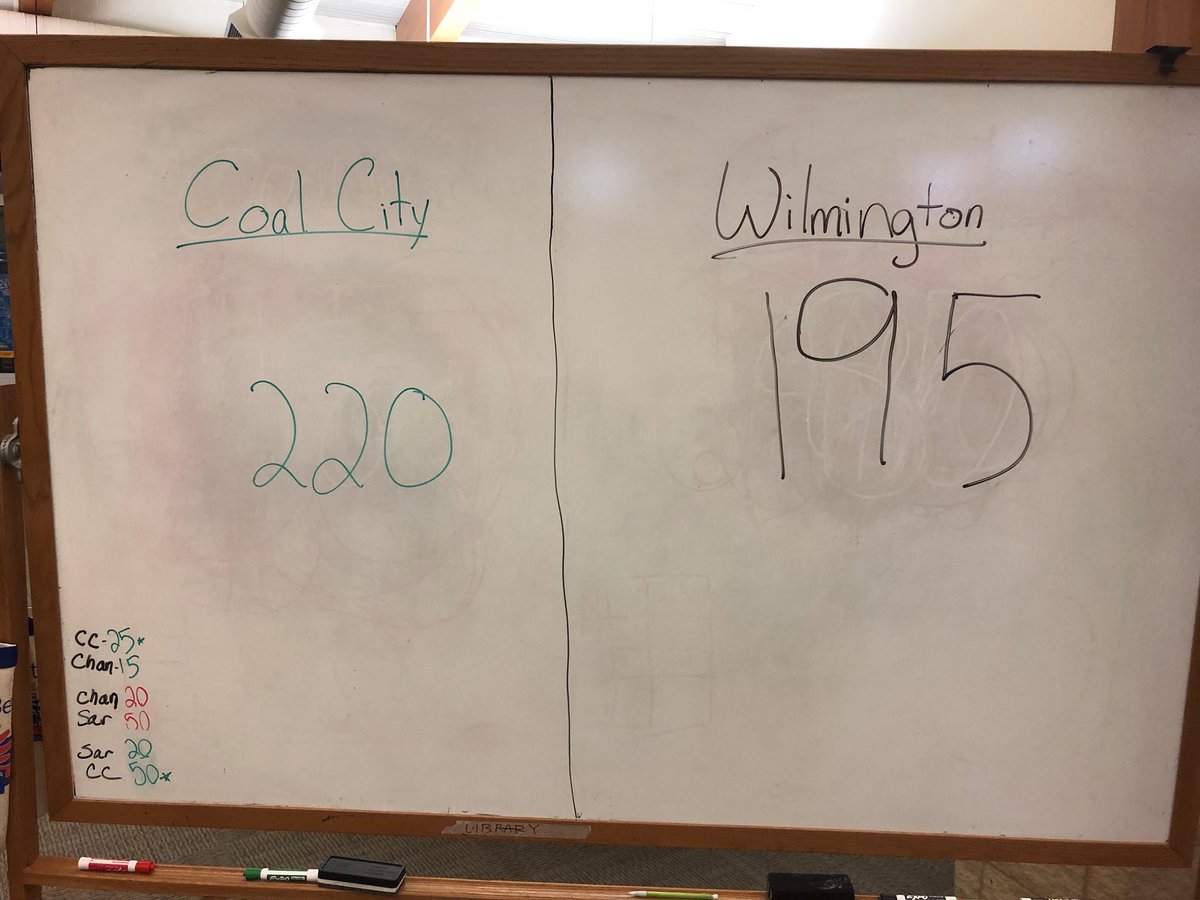 Coal City
220
Wilmington
195
CC-25*
Chan-15
Chan 20
Sar 50
Sar 20
CC 50*
LIBRARY
EXPO